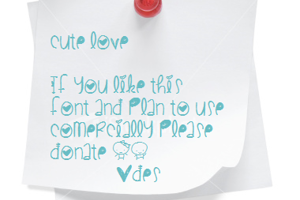 cute love
If You like this
font and Plan to use
comercially Please
donate
Vdes